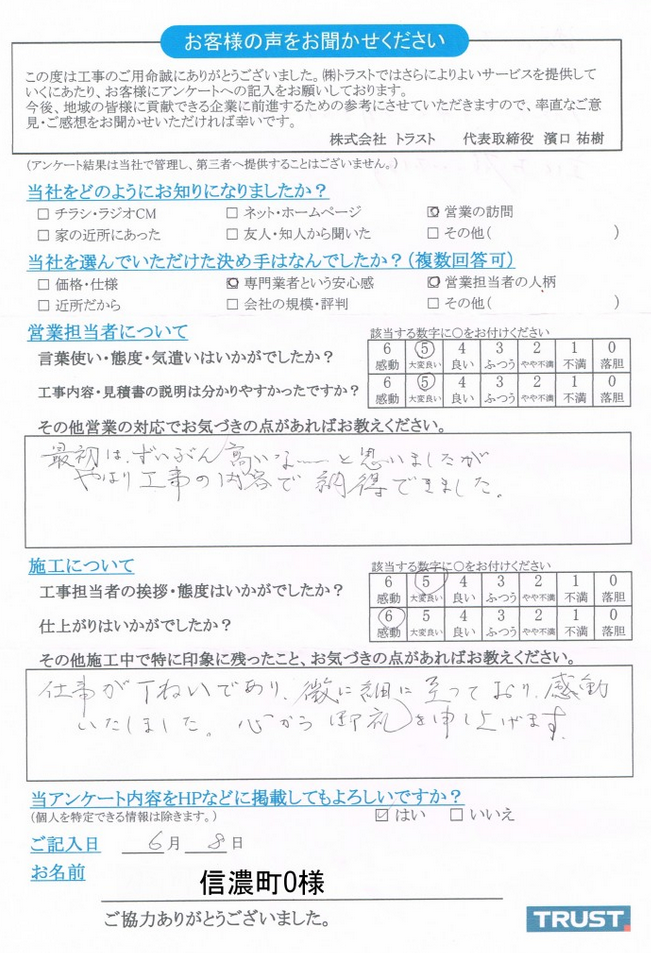 お客様の声をお聞かせください
この度は工事のご用命誠にありがとうございました。㈱トラストではさらによりよいサービスを提供して
いくにあたり、お客様にアンケートへの記入をお願いしております。
今後、地域の皆様に貢献できる企業に前進するための参考にさせていただきますので、率直なご意
見・ご感想をお聞かせいただければ幸いです。
株式会社 トラスト 代表取締役 濱口 祐樹
(アンケート結果は当社で管理し、第三者へ提供することはございません。)
当社をどのようにお知りになりましたか?
□ チラシ・ラジオCM □ ネット・ホームページ ☑ 営業の訪問
□ 家の近所にあった □ 友人・知人から聞いた □ その他( )
当社を選んでいただけた決め手はなんでしたか?(複数回答可)
□ 価格・仕様 ☑ 専門業者という安心感 ☑ 営業担当者の人柄
□ 近所だから □ 会社の規模・評判 □ その他( )
営業担当者について 該当する数字に○をお付けください
言葉使い・態度・気遣いはいかがでしたか? 6 5 4 3 2 1 0
感動 大変良い 良い ふつう やや不満 不満 落胆
工事内容・見積書の説明は分かりやすかったですか? 6 5 4 3 2 1 0
感動 大変良い 良い ふつう やや不満 不満 落胆
その他営業の対応でお気づきの点があればお教えください。
最初は、ずいぶん高いな――と思いましたが
やはり工事の内容で納得できました。
施工について 該当する数字に○をお付けください
工事担当者の挨拶・態度はいかがでしたか? 6 5 4 3 2 1 0
感動 大変良い 良い ふつう やや不満 不満 落胆
仕上がりはいかがでしたか? 6 5 4 3 2 1 0
感動 大変良い 良い ふつう やや不満 不満 落胆
その他施工中で特に印象に残ったこと、お気づきの点があればお教えください。
仕事が丁ねいであり、微に細に至っており、感動
いたしました。心から御礼を申し上げます。
当アンケート内容をHPなどに掲載してもよろしいですか?
(個人を特定できる情報は除きます。) ☑ はい □ いいえ
ご記入日 6月 8日
お名前 信濃町O様
ご協力ありがとうございました。
TRUST.